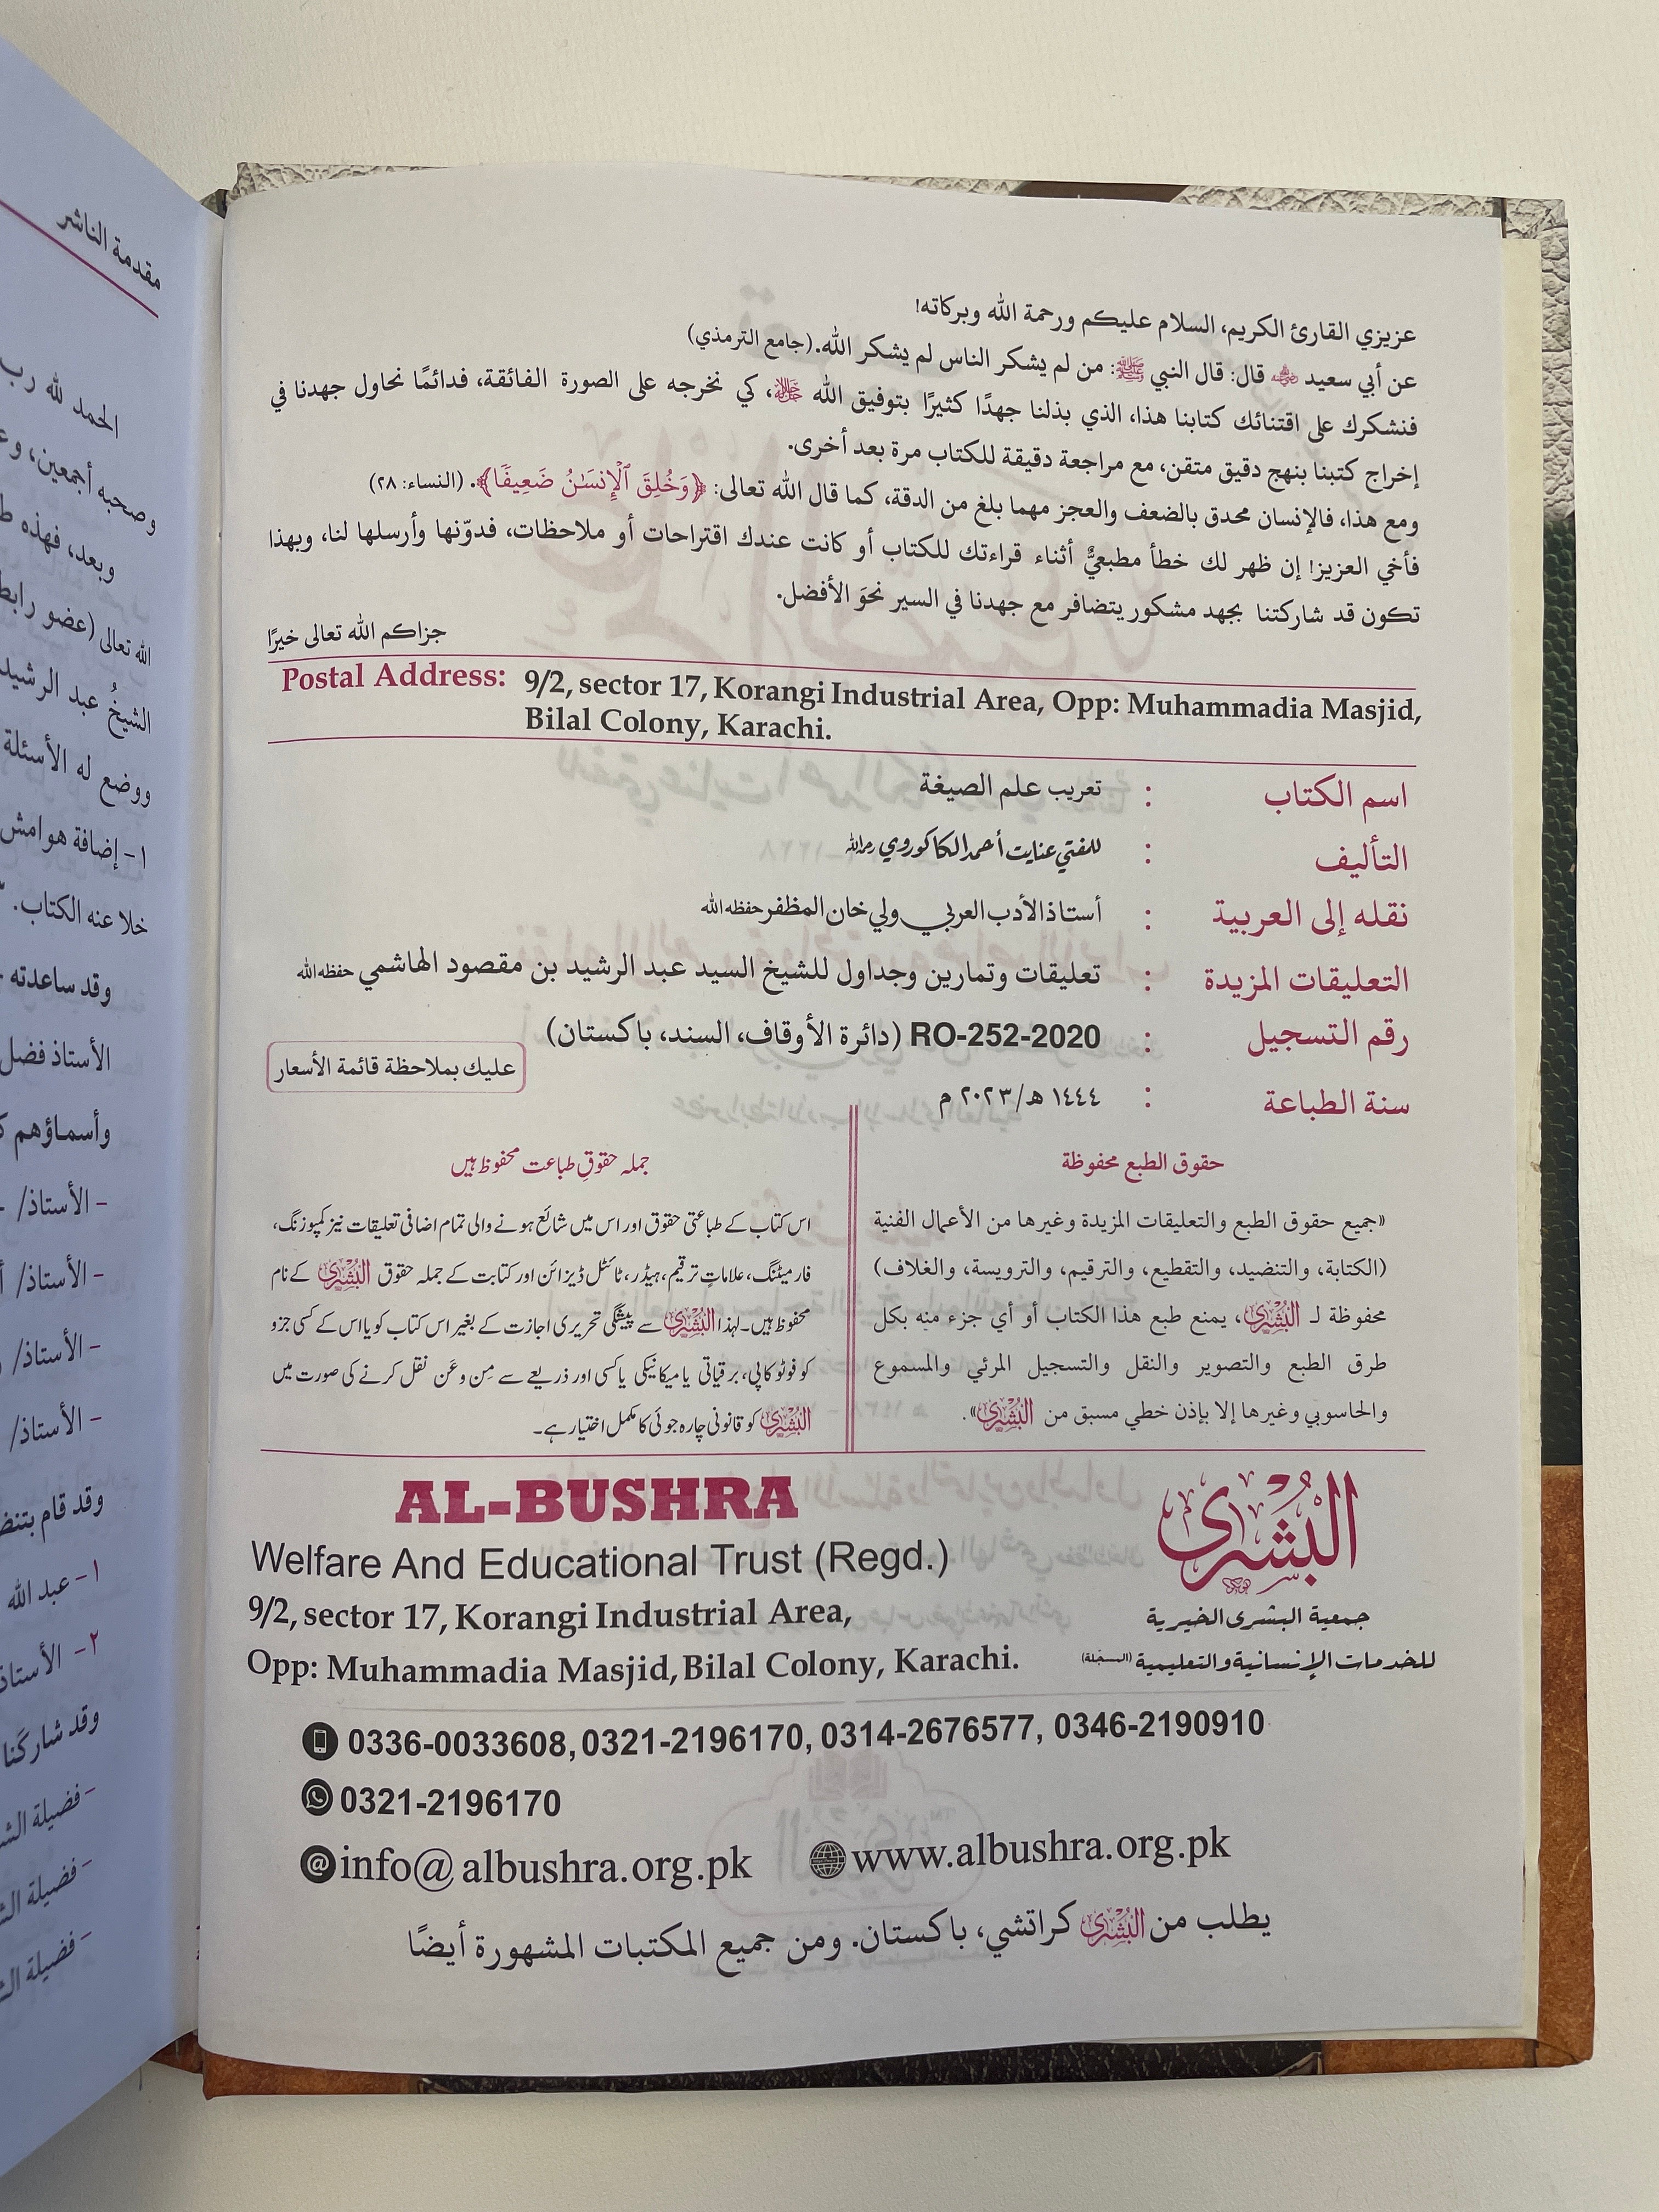 عزيزي القارئ الكريم، السلام عليكم ورحمة الله وبركاته!
عن أبي سعيد رضي الله عنه قال: قال النبي ﷺ: من لم يشكر الناس لم يشكر الله. (جامع الترمذي)
فنشكرك على اقتنائك كتابنا هذا، الذي بذلنا جهدًا كثيرًا بتوفيق الله ﷻ، كي نخرجه على الصورة الفائقة، فدائمًا نحاول جهدنا في
إخراج كتبنا بنهج دقيق متقن، مع مراجعة دقيقة للكتاب مرة بعد أخرى.
ومع هذا، فالإنسان محدق بالضعف والعجز مهما بلغ من الدقة، كما قال الله تعالى: ﴿وَخُلِقَ ٱلْإِنسَـٰنُ ضَعِيفًا﴾. (النساء: ٢٨)
فأخي العزيز! إن ظهر لك خطأ مطبعيٌّ أثناء قراءتك للكتاب أو كانت عندك اقتراحات أو ملاحظات، فدوّنها وأرسلها لنا، وبهذا
تكون قد شاركتنا بجهد مشكور يتضافر مع جهدنا في السير نحوَ الأفضل.
جزاكم الله تعالى خيرًا
Postal Address: 9/2, sector 17, Korangi Industrial Area, Opp: Muhammadia Masjid,
Bilal Colony, Karachi.
اسم الكتاب : تعريب علم الصيغة
التأليف : للمفتي عنايت أحمد الكاكوروي رحمه الله
نقله إلى العربية : أستاذ الأدب العربي ولي خان المظفر حفظه الله
التعليقات المزيدة : تعليقات وتمارين وجداول للشيخ السيد عبد الرشيد بن مقصود الهاشمي حفظه الله
رقم التسجيل : RO-252-2020 (دائرة الأوقاف، السند، باكستان)
عليك بملاحظة قائمة الأسعار
سنة الطباعة : ١٤٤٤ هـ/٢٠٢٣ م
حقوق الطبع محفوظة
«جميع حقوق الطبع والتعليقات المزيدة وغيرها من الأعمال الفنية
(الكتابة، والتنضيد، والتقطيع، والترقيم، والترويسة، والغلاف)
محفوظة لـ البُشرى، يمنع طبع هذا الكتاب أو أي جزء منه بكل
طرق الطبع والتصوير والنقل والتسجيل المرئي والمسموع
والحاسوبي وغيرها إلا بإذن خطي مسبق من البُشرى».
جملہ حقوقِ طباعت محفوظ ہیں
اس کتاب کے طباعتی حقوق اور اس میں شائع ہونے والی تمام اضافی تعلیقات نیز کمپوزنگ،
فارمیٹنگ، علاماتِ ترقیم، ہیڈر، ٹائٹل ڈیزائن اور کتابت کے جملہ حقوق البُشرى کے نام
محفوظ ہیں۔ لہٰذا البُشرى سے پیشگی تحریری اجازت کے بغیر اس کتاب کو یا اس کے کسی جزو
کو فوٹو کاپی، برقیاتی یا میکانیکی یا کسی اور ذریعے سے مِن وعَن نقل کرنے کی صورت میں
البُشرى کو قانونی چارہ جوئی کا مکمل اختیار ہے۔
AL-BUSHRA
Welfare And Educational Trust (Regd.)
9/2, sector 17, Korangi Industrial Area,
Opp: Muhammadia Masjid, Bilal Colony, Karachi.
البُشرى
جمعية البشرى الخيرية
للخدمات الإنسانية والتعليمية (المسجّلة)
0336-0033608, 0321-2196170, 0314-2676577, 0346-2190910
0321-2196170
info@albushra.org.pk www.albushra.org.pk
يطلب من البُشرى كراتشي، باكستان. ومن جميع المكتبات المشهورة أيضًا
مقدمة الناشر
الحمد لله رب
وصحبه أجمعين،
وبعد، فهذه
الله تعالى (عضو
الشيخُ عبد الرشيد
ووضع له الأسئلة
١- إضافة هوامش
خلا عنه الكتاب.
وقد ساعدته
الأستاذ فضل
وأسماؤهم
- الأستاذ/
- الأستاذ/
- الأستاذ/
- الأستاذ/
وقد قام
١- عبد الله
٢- الأستاذ
وقد شاركَنا
- فضيلة
- فضيلة
- فضيلة